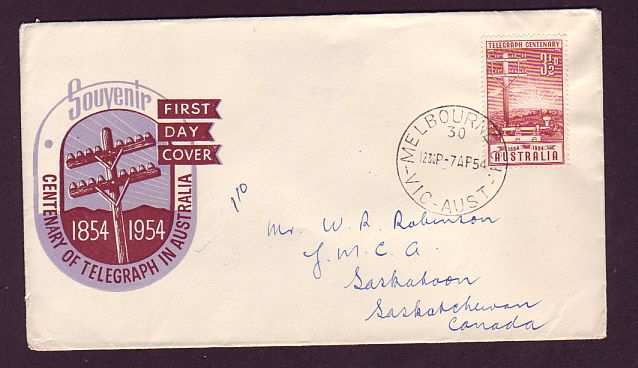 Souvenir
FIRST
DAY
COVER
1854 1954
CENTENARY OF TELEGRAPH IN AUSTRALIA
1/0
TELEGRAPH CENTENARY
3½D
1854 1954
AUSTRALIA
MELBOURNE
30
1230P-7AP54
VIC-AUST
Mr. W. R. Robinson
Y. M. C. A.
Saskatoon
Saskatchewan
Canada